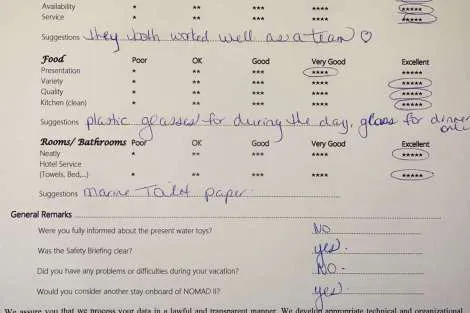 Availability * ** *** **** *****
Service * ** *** **** *****
Suggestions they both worked well as a team ♡
Food Poor OK Good Very Good Excellent
Presentation * ** *** **** *****
Variety * ** *** **** *****
Quality * ** *** **** *****
Kitchen (clean) * ** *** **** *****
Suggestions plastic glasses for during the day, glass for dinner only
Rooms/ Bathrooms Poor OK Good Very Good Excellent
Neatly * ** *** **** *****
Hotel Service
(Towels, Bed,...) * ** *** **** *****
Suggestions marine Toilet paper.
General Remarks
Were you fully informed about the present water toys? NO
Was the Safety Briefing clear? yes.
Did you have any problems or difficulties during your vacation? NO-
Would you consider another stay onboard of NOMAD II? yes.
We assure you that we process your data in a lawful and transparent manner. We develop appropriate technical and organizational